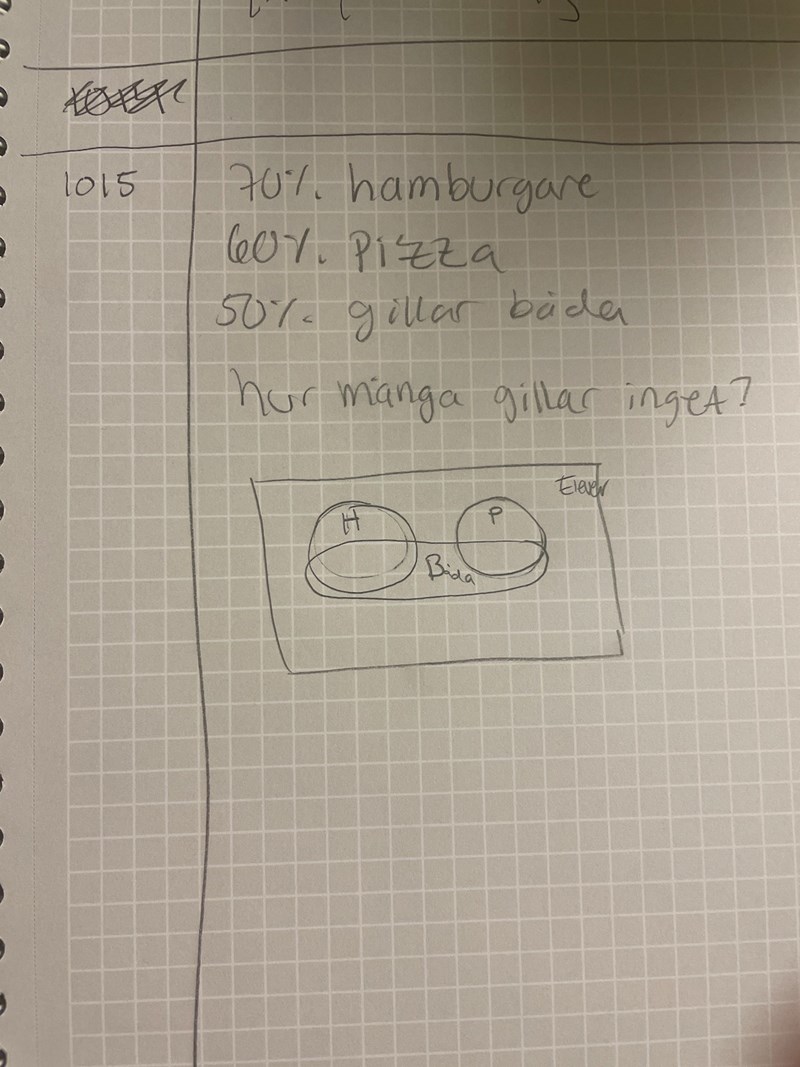 1015
70%. hamburgare
60%. Pizza
50%. gillar båda
hur många gillar inget?
Elever
H
P
Båda